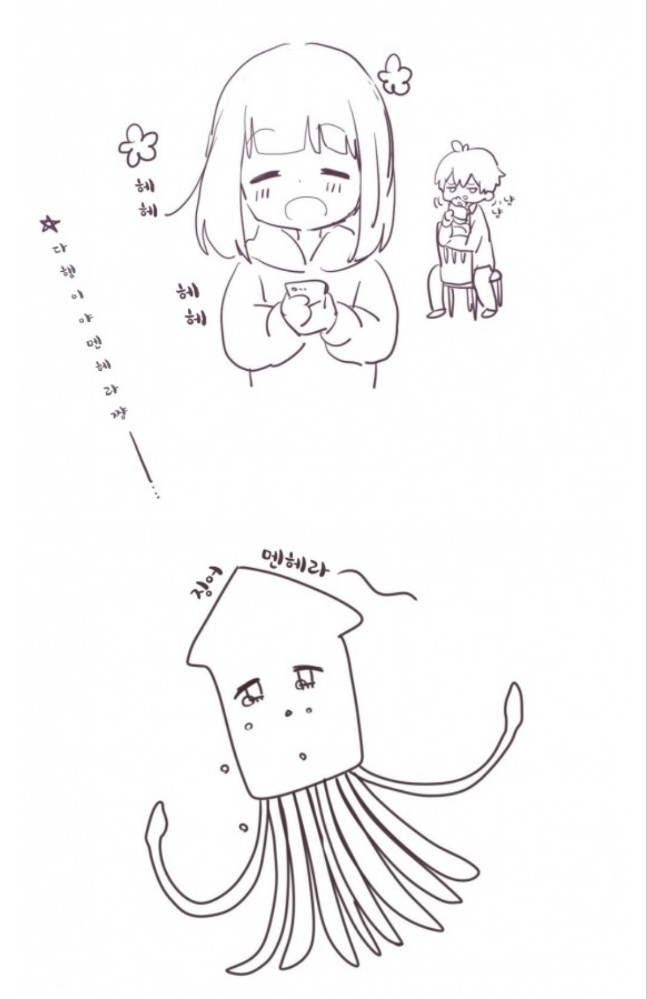 헤
헤
헤
헤
냠
냠
☆다행이야멘헤라쨩
징어
멘헤라